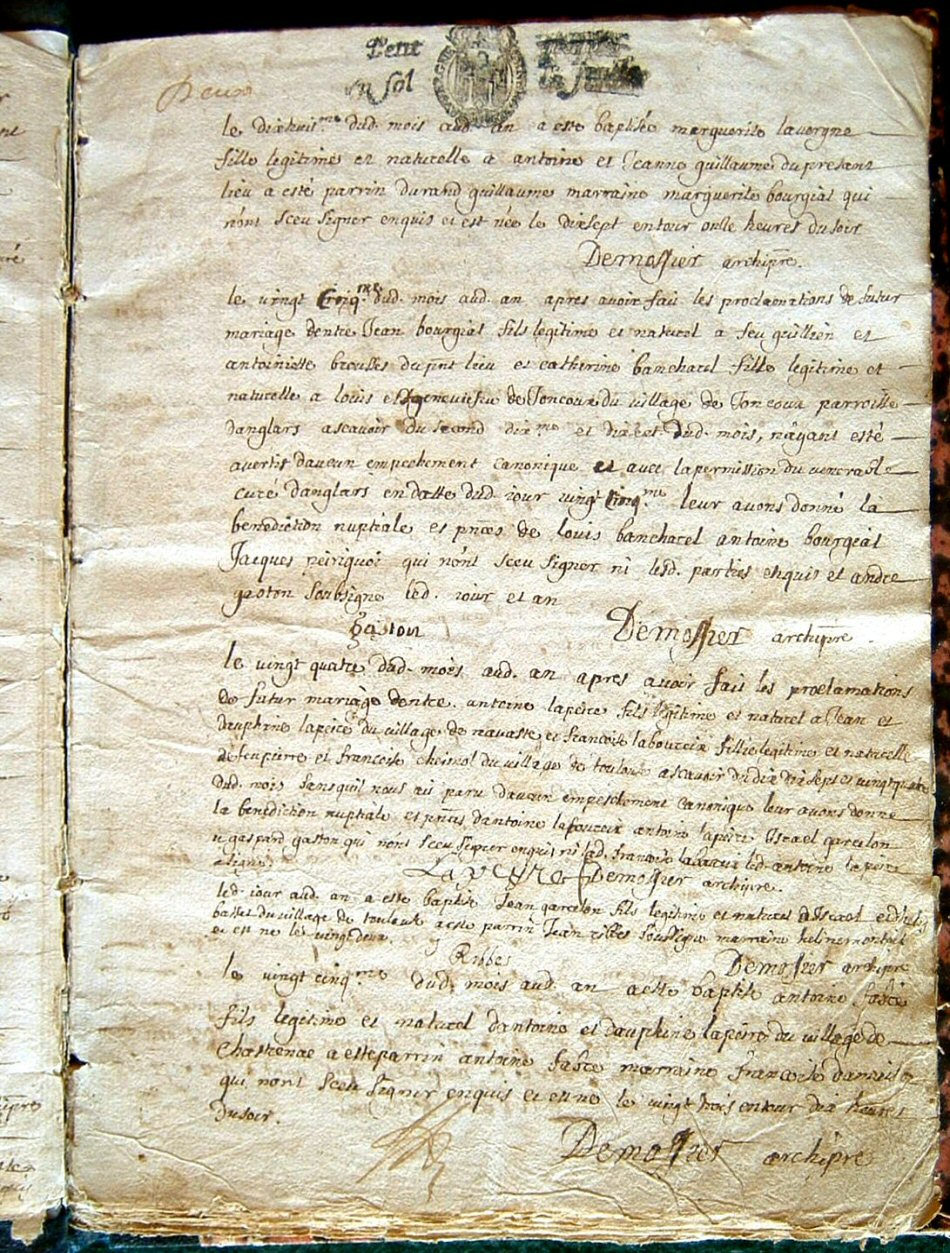 Petit
un sol
Deux
le dixhuit.me dud. mois aud. an a esté baptisée marguerite lavergne
fille legitime et naturelle a antoine et Jeanne guillaume du present
lieu a esté parrin durand guillaume marraine marguerite bourgiat qui
n'ont sceu signer enquis et est née le dixsept entour onse heures du soir
Demossier archipre.
le vingt cinq.me dud. mois aud. an apres avoir fait les proclamations de futur
mariage dentre Jean bourgiat fils legitime et naturel a feu et
antoinette brousses du pnt lieu et catherine banchatel fille legitime et
naturelle a louis et geneviesve de Joncoux du village de Joncoux parroisse
danglars ascavoir du second dix.me et dud. mois, n'ayant esté
avertis daucun empechement canonique et avec la permission du venerable
curé danglars en datte dud. iour vingt cinq.me leur avons donné la
benediction nuptiale es pnces de louis banchatel antoine bourgiat
Jacques peiriquot qui n'ont sceu signer ni lesd. parties enquis et andre
gaston soubsigne led. iour et an
gaston Demossier archipre.
le vingt quatre dud. mois aud. an apres avoir fait les proclamations
de futur mariage dentre antoine lapeire fils legitime et naturel a Jean et
dauphine lapeire du village de navaste et francoise labouceix fille legitime et naturelle
de feu pierre et francoise cheimol du village de toulouse ascavoir du dix dixsept et vingtquatre
dud. mois sans quil nous ait paru daucun empeschement canonique leur avons donne
la benediction nuptiale es pnces dantoine labouceix antoine lapeire Iscael garcelon
et gaspard gaston qui n'ont sceu signer enquis ni lad. francoise labouceix led. antoine lapeire
a signé. Demossier archipre.
led. iour aud. an a este baptisé Jean garcelon fils legitime et naturel a Iscael et
du village de toulouse a este parrin Jean ribbes soussigne marraine
et est ne le vingt deux. Ribbes Demossier archipre
le vingt cinq.me dud. mois aud. an a este baptisé antoine faste
fils legitime et naturel dantoine et dauphine lapeire du village de
chastenac a este parrin antoine faste marraine francoise
qui nont sceu signer enquis et est ne le vingt trois entour dix heures
du soir.
Demossier archipre